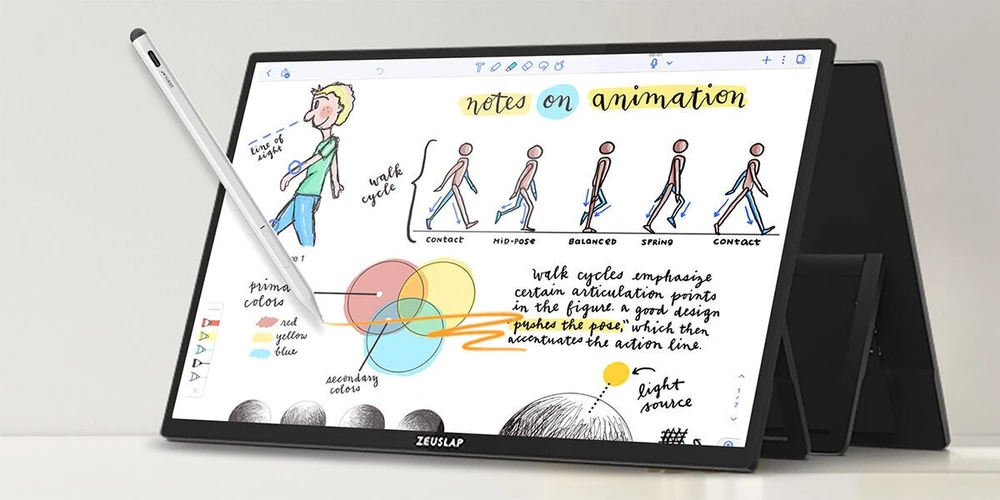 notes on animation
line of
sight
walk
cycle
CONTACT
MID-POSE
BALANCED
SPRING
CONTACT
colors
red
yellow
blue
secondary
colors
walk cycles emphasize
certain articulation points
in the figure. a good design
"pushes the pose," which then
accentuates the action line.
light
source
ZEUSLAP